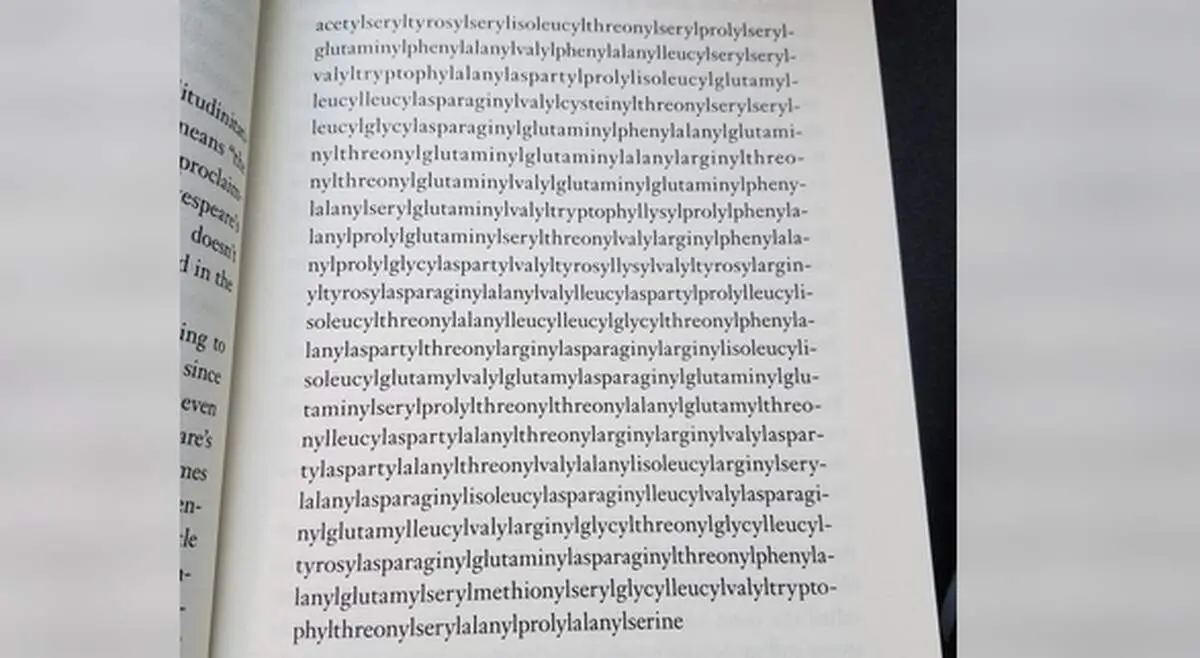 itudinitat-
means "the
proclaim-
espeare's
doesn't
d in the
ing to
since
even
are's
mes
en-
acetylseryltyrosylserylisoleucylthreonylserylprolylseryl-
glutaminylphenylalanylvalylphenylalanylleucylserylseryl-
valyltryptophylalanylaspartylprolylisoleucylglutamyl-
leucylleucylasparaginylvalylcysteinylthreonylserylseryl-
leucylglycylasparaginylglutaminylphenylalanylglutami-
nylthreonylglutaminylglutaminylalanylarginylthreo-
nylthreonylglutaminylvalylglutaminylglutaminylpheny-
lalanylserylglutaminylvalyltryptophyllysylprolylphenyla-
lanylprolylglutaminylserylthreonylvalylarginylphenylala-
nylprolylglycylaspartylvalyltyrosyllysylvalyltyrosylargin-
yltyrosylasparaginylalanylvalylleucylaspartylprolylleucyli-
soleucylthreonylalanylleucylleucylglycylthreonylphenyla-
lanylaspartylthreonylarginylasparaginylarginylisoleucyli-
soleucylglutamylvalylglutamylasparaginylglutaminylglu-
taminylserylprolylthreonylthreonylalanylglutamylthreo-
nylleucylaspartylalanylthreonylarginylarginylvalylaspar-
tylaspartylalanylthreonylvalylalanylisoleucylarginylsery-
lalanylasparaginylisoleucylasparaginylleucylvalylasparagi-
nylglutamylleucylvalylarginylglycylthreonylglycylleucyl-
tyrosylasparaginylglutaminylasparaginylthreonylphenyla-
lanylglutamylserylmethionylserylglycylleucylvalyltrypto-
phylthreonylserylalanylprolylalanylserine